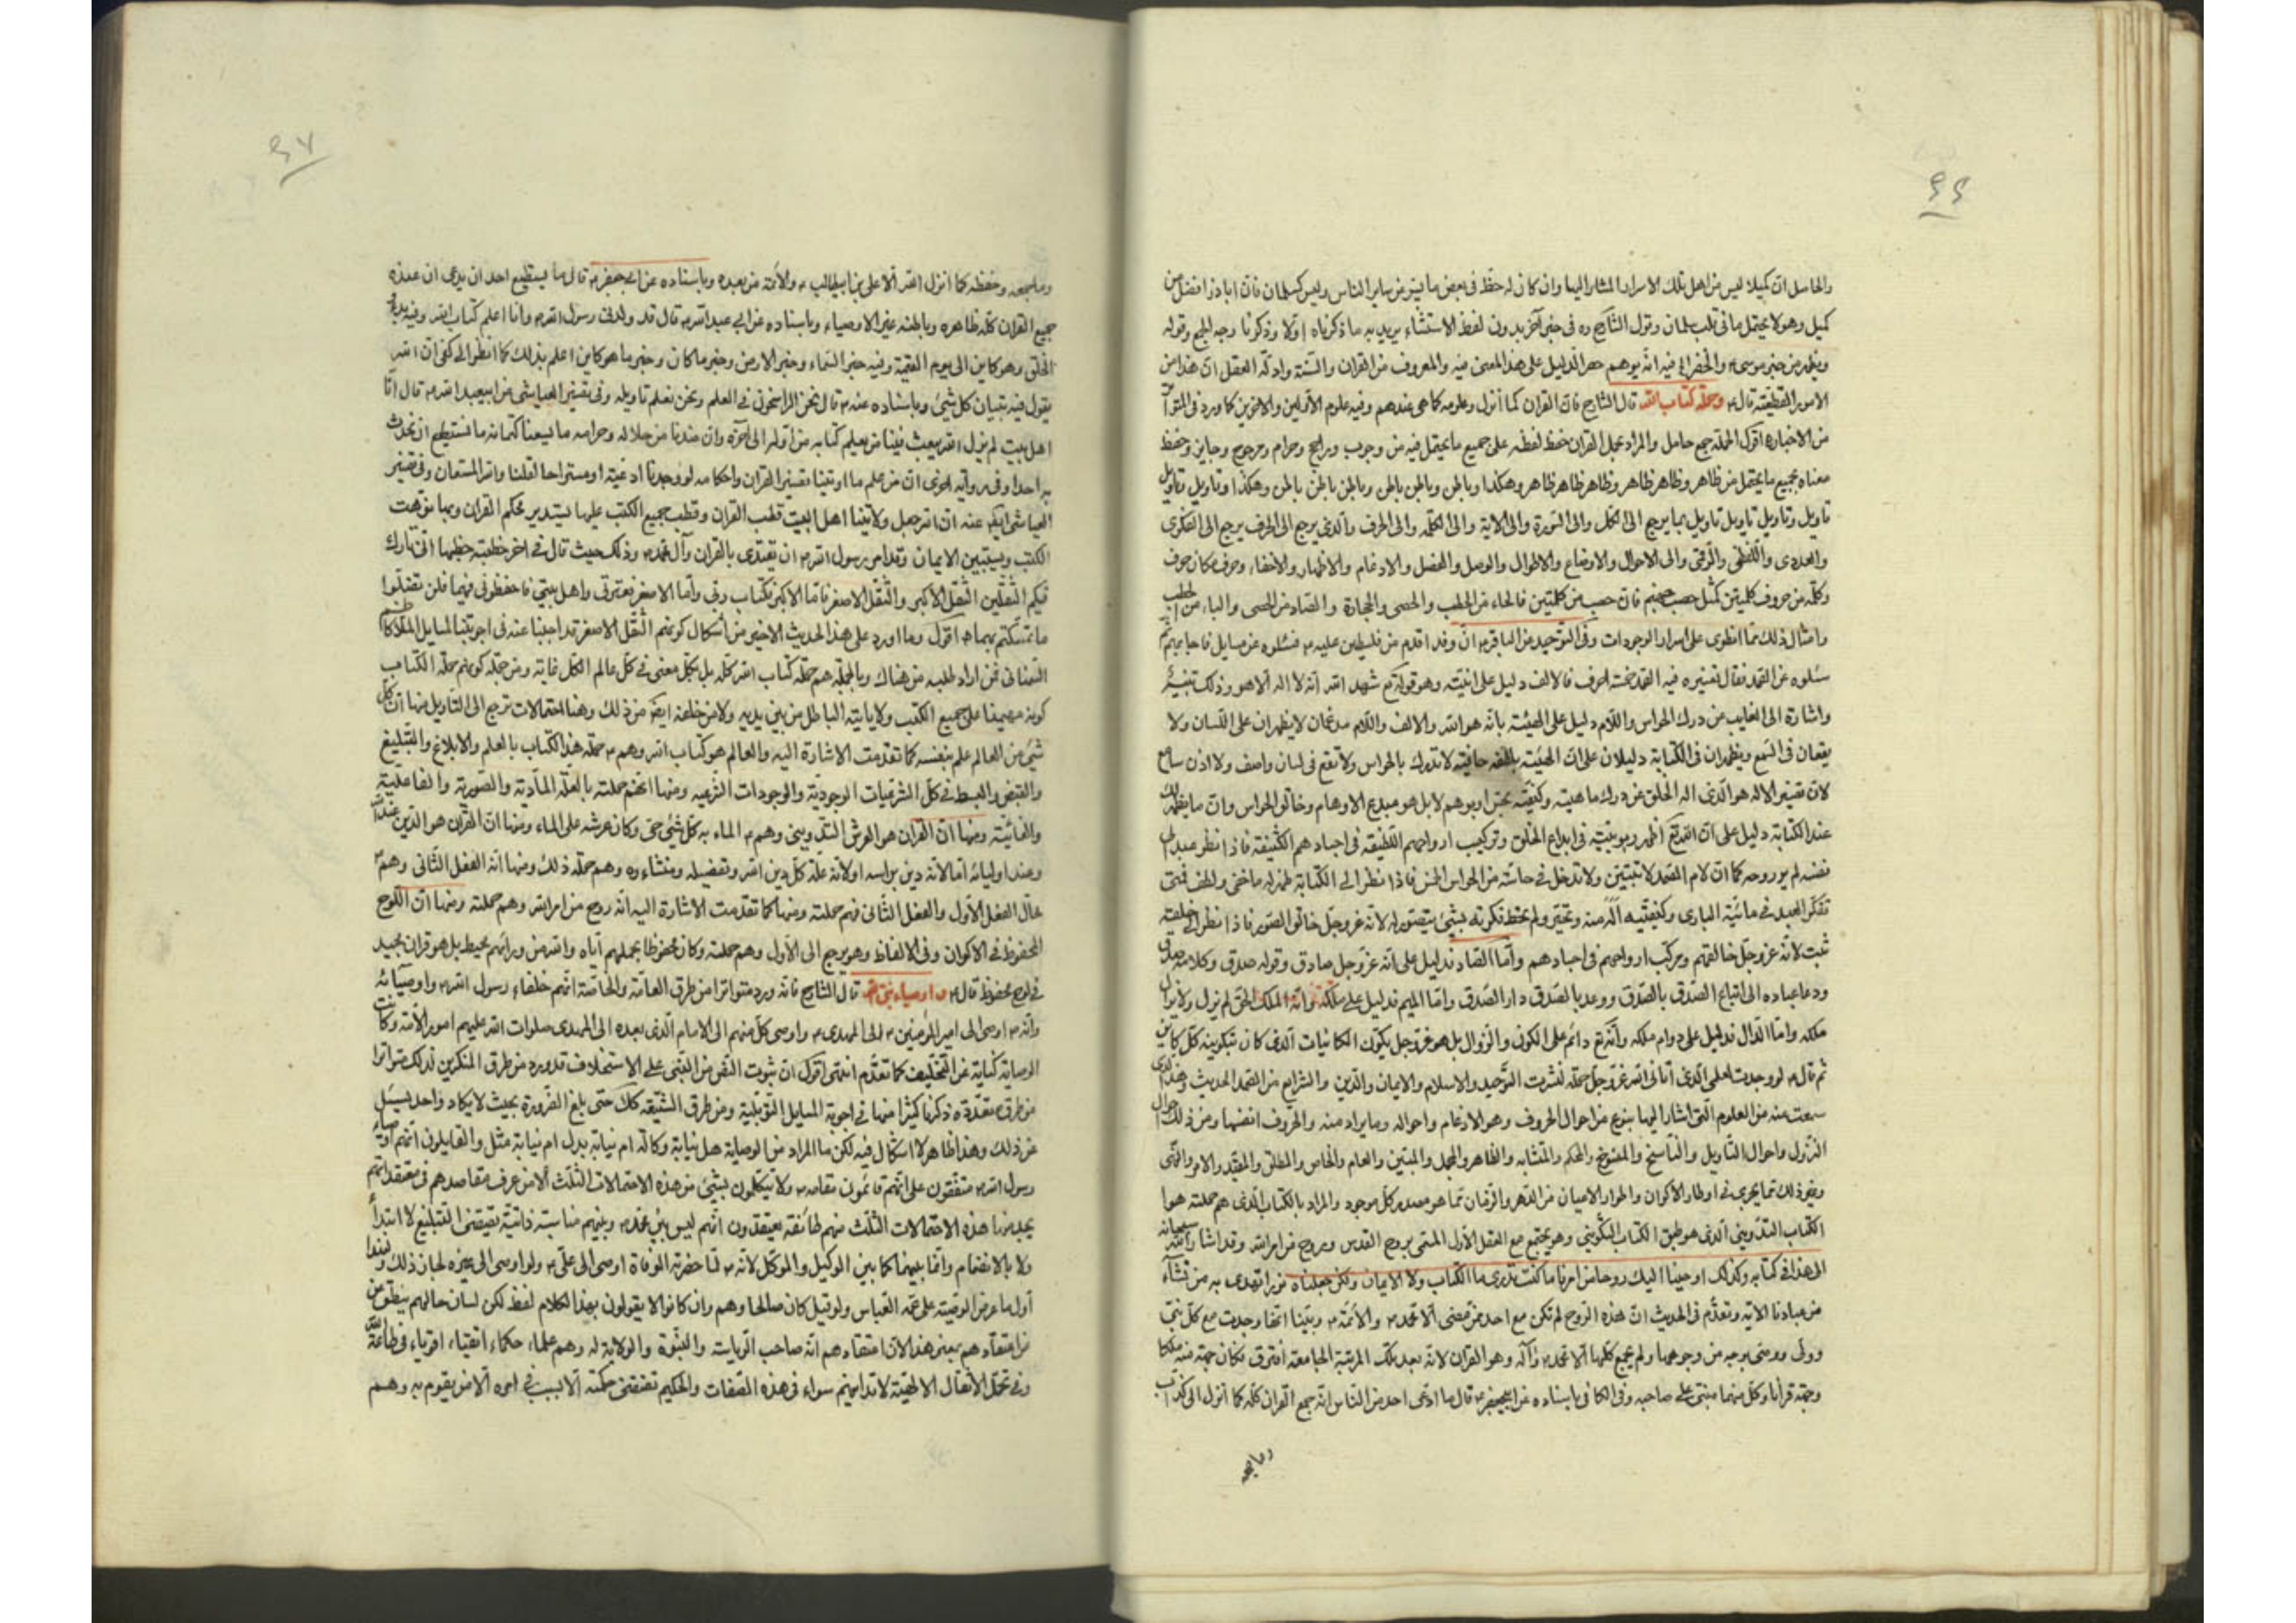 ٤٦
والحاصل ان كميلا ليس من اهل تلك الاسرار المشار اليها وان كان له حظ في بعض ما يتميز من ساير الناس وليس كسلمان فان اباذر افضل من
كميل وهو لا يحتمل ما في قلب سلمان وقول الشارح ره في خبر آخر بدون لفظ الاستثناء يريد به ما ذكرناه اولا وذكرنا وجه الجمع وقوله
ويظهر من خبر موسى ع والخضر الخ فيه انه يوهم حصر الدليل على هذا المعنى فيه والمعروف من القران والسنة وادلة العقل ان هذا من
الامور القطعية قال ع وحملة كتاب الله قال الشارح فان القران كما أنزل وعلومه كما هي عندهم وفيه علوم الأولين والاخرين كما ورد في المتواتر
من الاخبار ه اقول الحملة جمع حامل والمراد بحمل القران حفظ لفظه على جميع ما يحتمل فيه من وجوب وراجح وحرام ومرجوح وجايز وحفظ
معناه بجميع ما يحتمل من ظاهر وظاهر ظاهر وظاهر ظاهر ظاهر وهكذا وباطن وباطن باطن وباطن باطن باطن وهكذا وتاويل وتاويل
تاويل وتاويل تاويل تاويل بما يرجع الى الكل والى السورة والى الاية والى الكلمة والى الحرف والذي يرجع الى الحرف يرجع الى الفكرى
والعددى واللفظى والرقمى والى الاحوال والاوضاع والاطوال والوصل والفصل والادغام والاظهار والاخفاء وحرف مكان حرف
وكلمة من حروف كلمتين كمثل حصب جهنم فان حصب من كلمتين فالحاء من الحطب والحصى والحجارة والصاد من الحصى والباء من الحطب
وامثال ذلك مما انطوى على اسرار الوجودات وفي التوحيد من الباقر ع ان وفدا قدم من فلسطين عليه ع فسئلوه عن مسايل فاجابهم ثم
سئلوه عن الصمد فقال تفسيره فيه الصمد خمسة احرف فالالف دليل على انيته وهو قوله تع شهد الله انه لا اله الا هو وذلك تنبيه
واشارة الى الغايب عن درك الحواس واللام دليل على الهيته بانه هو الله والالف واللام مدغمان لا يظهران على اللسان ولا
يقعان في السمع ويظهران في الكتابة دليلان على ان الهيته بلطفه خافية لا تدرك بالحواس ولا تقع في لسان واصف ولا اذن سامع
لان تفسير الاله هو الذي اله الخلق عن درك ماهيته وكيفيته بحس او بوهم لا بل هو مبدع الاوهام وخالق الحواس وان ما يظهر ذلك
عند الكتابة دليل على ان الله تع اظهر ربوبيته في ابداع الخلق وتركيب ارواحهم اللطيفة في اجسادهم الكثيفة فاذا نظر عبد الى
نفسه لم ير روحه كما ان لام الصمد لا تتبين ولا تدخل في حاسة من الحواس الخمس فاذا نظر الى الكتابة ظهر له ما خفي ولطف فمتى
تفكر العبد في مائية البارى وكيفيته اله منه وتحير ولم تحط فكرته بشئ يتصور له لانه عز وجل خالق الصور فاذا نظر الى خلقه
ثبت لانه عز وجل خالقهم ومركب ارواحهم في اجسادهم واما الصاد فدليل على انه عز وجل صادق وقوله صدق وكلامه صدق
ودعا عباده الى اتباع الصدق بالصدق ووعد بالصدق دار الصدق واما الميم فدليل على ملكه وانه الملك الحق لم يزل ولا يزال
ملكه واما الدال فدليل على دوام ملكه وانه تع دائم على الكون والزوال بل هو عز وجل يكون الكائنات الذي كان بتكوينه كل كاين
ثم قال ع لو وجدت لعلمي الذي اتاني الله عز وجل حملة لنشرت التوحيد والاسلام والايمان والدين والشرايع من الصمد الحديث وهذا الذي
سمعت منه من العلوم التي اشار اليها بنوع من احوال الحروف وهو الادغام واحواله وما يراد منه والحروف انفسها ومن ذلك احوال
النزول واحوال التأويل والناسخ والمنسوخ والمحكم والمتشابه والظاهر والمجمل والمبين والعام والخاص والمطلق والمقيد والامر والنهى
وغير ذلك مما يجرى في اوطار الأكوان واطوار الاعيان من الدهر والزمان مما هو مصدر كل موجود والمراد بالكتاب الذي هم حملته هو
الكتاب التدويني الذي هو طبق الكتاب التكويني وهو يجتمع مع العقل الأول المسمى بروح القدس وبروح من امر الله وقد اشار الله سبحانه
الى هذا في كتابه وكذلك اوحينا اليك روحا من امرنا ما كنت تدرى ما الكتاب ولا الايمان ولكن جعلناه نورا نهدى به من نشاء
من عبادنا الاية وتقدم في الحديث ان هذه الروح لم تكن مع احد ممن مضى الا محمد ص والائمة ع وبينا انها وجدت مع كل نبي
وولى ووصى بوجه من وجوهها ولم يجمع كلها الا محمد ص وآله وهو القران لانه بعد تلك المرتبة الجامعة افترق فكان جهة منه ملكا
وجهة قرأنا وكل منهما مبتنى على صاحبه وفي الكافي باسناده عن ابي جعفر ع قال ما ادعى احد من الناس انه جمع القران كله كما أنزل الا كذاب
وما جمعه
٤٧
وما جمعه وحفظه كما انزل الله الا على بن ابيطالب ع والأئمة من بعده وباسناده عن ابي جعفر ع قال ما يستطيع احد ان يدعى ان عنده
جميع القران كله ظاهره وباطنه غير الاوصياء وباسناده عن ابي عبد الله ع قال قد ولدنى رسول الله ص وانا اعلم كتاب الله وفيه بدء
الخلق وهو كاين الى يوم القيمة وفيه خبر السماء وخبر الارض وخبر ما كان وخبر ما هو كاين اعلم بذلك كما انظر الى كفى ان الله
يقول فيه تبيان كل شئ وباسناده عنه ع قال نحن الراسخون في العلم ونحن نعلم تاويله وفى تفسير العياشى عن ابيعبد الله ع قال انا
اهل بيت لم يزل الله يبعث فينا من يعلم كتابه من اوله الى آخره وان عندنا من حلاله وحرامه ما يسعنا كتمانه ما نستطيع ان نحدث
به احدا وفى رواية اخرى ان من علم ما اوتينا تفسير القران واحكامه لو وجدنا اوعية او مستراحا لقلنا والله المستعان وفى تفسير
العياشى ايضا عنه ان الله جعل ولايتنا اهل البيت قطب القران وقطب جميع الكتب عليها يستدير محكم القران وبها نوهت
الكتب ويستبين الايمان وقد امر رسول الله ص ان يقتدى بالقران وآل محمد ص وذلك حيث قال في اخر خطبة خطبها انى تارك
فيكم الثقلين الثقل الأكبر والثقل الاصغر فاما الاكبر فكتاب ربى وأما الاصغر فعترتى واهل بيتى فاحفظونى فيهما فلن تضلوا
ما تمسكتم بهما ه اقول وما اورد على هذا الحديث الاخير من اشكال كونهم الثقل الاصغر قد اجبنا عنه في اجوبتنا لمسايل الملا كاظم
السمنانى فمن اراد طلبه من هناك وبالجملة هم حملة كتاب الله كله بل بكل معنى في كل عالم الكل غاية ومن جملة كونهم حملة الكتاب
كونه مهيمنا على جميع الكتب ولا يأتيه الباطل من بين يديه ولا من خلفه ايضا من ذلك وهنا احتمالات ترجع الى التاويل منها ان كل
شئ من العالم علم بنفسه كما تقدمت الاشارة اليه والعالم هو كتاب الله وهم ع حملة هذا الكتاب بالعلم والابلاغ والتبليغ
والقبض والبسط في كل الشرعيات الوجودية والوجودات الشرعية ومنها انهم حملته بالعلة المادية والصورية والفاعلية
والغائية ومنها ان القران هو العرش التدوينى وهم ع الماء به كل شئ حى وكان عرشه على الماء ومنها ان القران هو الدين عند الله
وعند اوليائه اما لانه دين براسه او لانه علة كل دين الله وتفصيله ومنشاءه وهم حملة ذلك ومنها انه العقل الثانى وهم ع
حال العقل الأول والعقل الثانى فهم حملته ومنها كما تقدمت الاشارة اليه انه روح من امر الله وهم حملته ومنها ان اللوح
المحفوظ في الاكوان وفى الالفاظ وهو يرجع الى الأول وهم حملته وكان محفوظا بحملهم اياه والله من ورائهم محيط بل هو قران مجيد
في لوح محفوظ قال ع واوصياء نبي الله قال الشارح فانه ورد متواترا من طرق العامة والخاصة انهم خلفاء رسول الله ص واوصيائه
وانه ص اوصى الى امير المؤمنين ع الى المهدى ع واوصى كل منهم الى الامام الذى بعده الى المهدى صلوات الله عليهم امور الأمة وكانت
الوصاية كناية عن التخليف كما تقدم انتهى اقول ان ثبوت النص من النبى على الاستخلاف قد ورد من طرق المنكرين لذلك متواترا
من طرق متعددة ذكرنا كثيرا منها في اجوبة المسايل التوبلية ومن طرق الشيعة كذلك حتى بلغ الضرورة بحيث لا يكاد واحد يسئل
عن ذلك وهذا ظاهر لا اشكال فيه لكن ما المراد من الوصاية هل نيابة وكالة ام نيابة بدل ام نيابة مثل والقايلون انهم اوصياء
رسول الله ص متفقون على انهم قائمون مقامه ص ولا يتكلون بشئ من هذه الاحتمالات الثلث الا من عرف مقاصدهم في معتقداتهم
يجد منها هذه الاحتمالات الثلث منهم طائفة يعتقدون انهم ليس بين محمد ص وبينهم مناسبة ذاتية تقتضى التبليغ لا ابتداء
ولا بالانضمام وانما بينهما كما بين الوكيل والموكل لانه ص لما حضرته الوفاة اوصى الى على ع ولو اوصى الى غيره لجاز ذلك ولهذا
أول ما عرض الوصية على عمه العباس ولو قبل كان صالحا وهم وان كانوا لا يقولون بهذا الكلام لفظ لكن لسان حالهم ينطق من
اعتقادهم بمعنى هذا الان اعتقادهم انه صاحب الرياسة والنبوة والولاية له وهم علماء حكماء اتقياء اقوياء في طاعة الله
وفى تحمل الأثقال الالهية لاتدانيهم سواء في هذه الصفات والحكيم تقتضى حكمته ألا ينيب في امره الا من يقوم به وهم